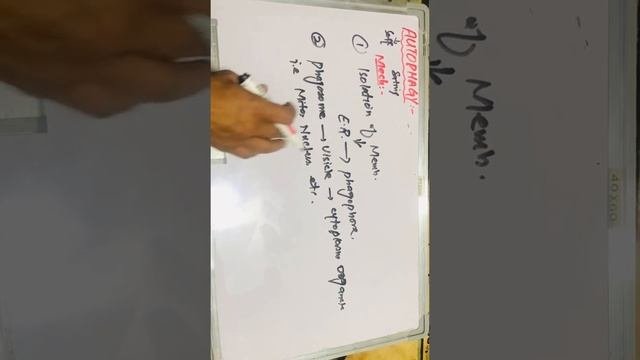 AUTOPHAGY:-
Self Eating
Mech:-
① Isolation of Memb.
E.R. → phagophore.
② phagosome → visicle → cytoplasm organele
i.e Mito, Nucleus etc.
of Memb.
40X60